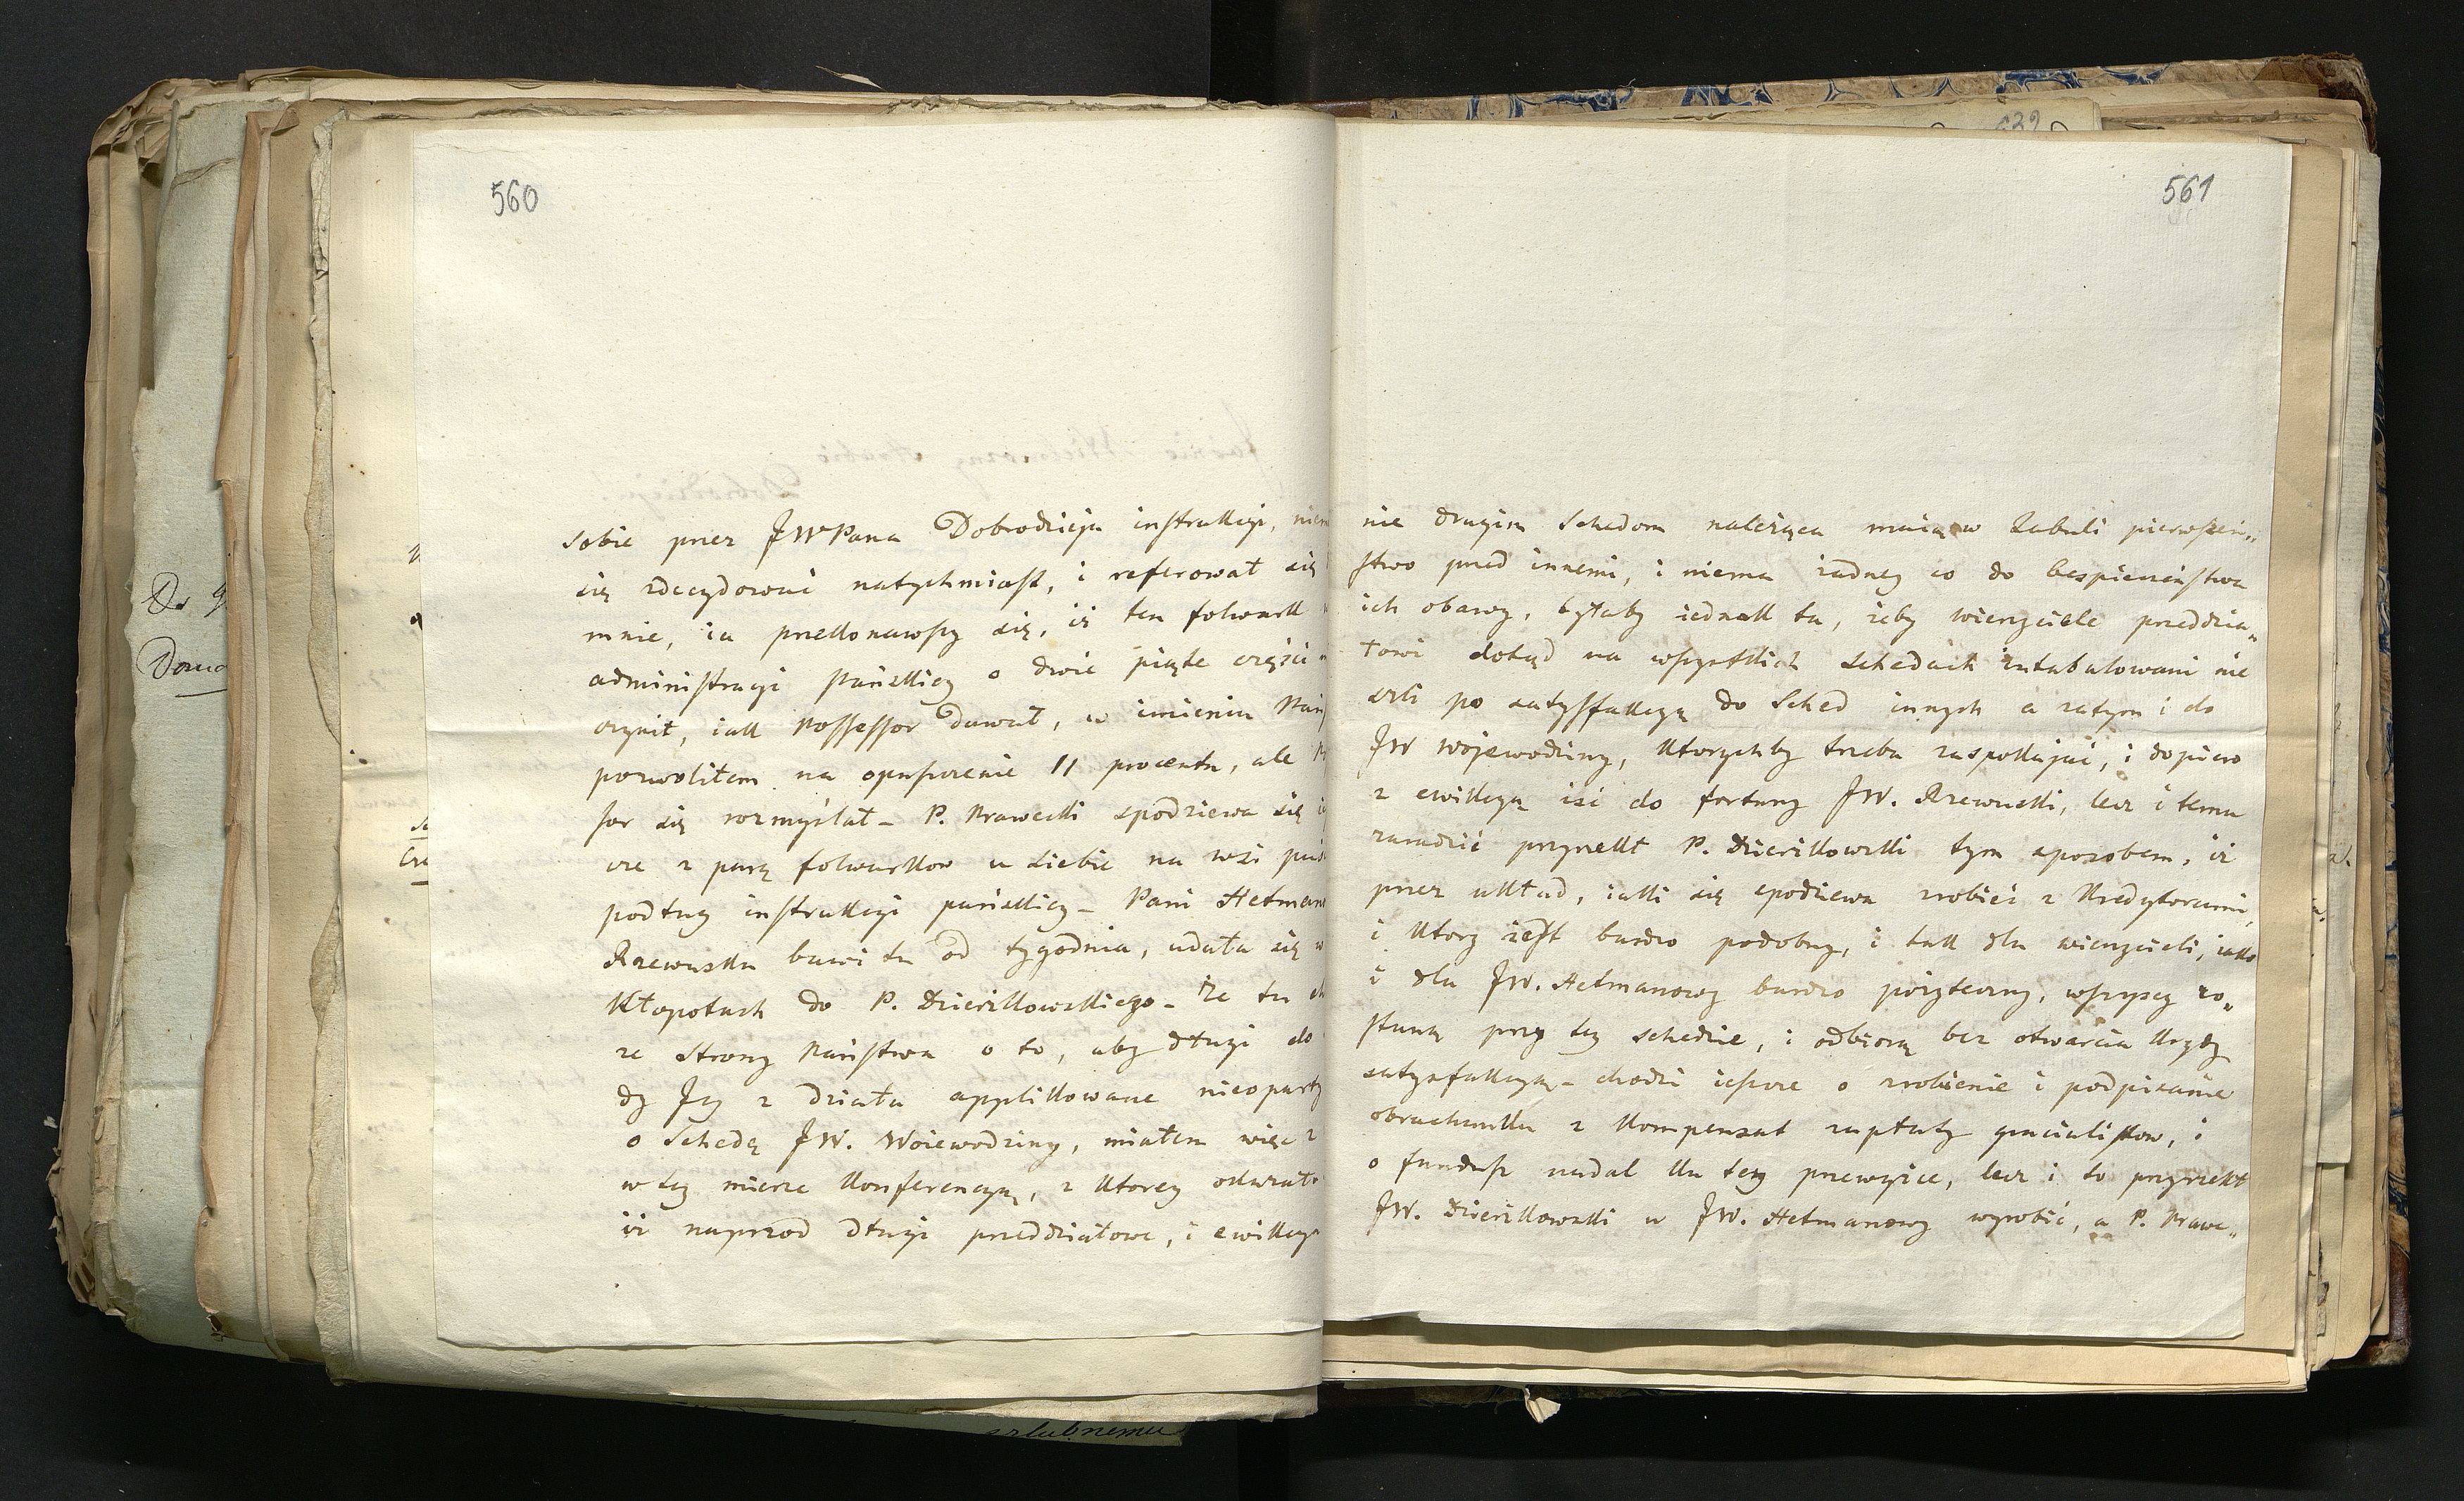 560
sobie przez JWPana Dobrodzieja instrukcji,
się zdecydować natychmiast, i referował się
mnie, ia przekonawszy się, iż ten folwark
administracyi pańskiey o dwie piąte części
czynił, iak Possessor dawał, w imieniu
pozwoliłem na opuszczenie 11 procentu, ale
sor się rozmyślał – P. Krawecki spodziewa się
cze z parą folwarkow u siebie na wsi
podług instrukcyi pańskiey – Pani Hetman
Rzewuska bawi tu od tygodnia, udała się w
Kłopotach do P. Dzierzkowskiego – że tu
ze strony Państwa o to, aby długi do
dy Jey z działu applikowane nieoparły
o Schedę JW. Woiewodziny, miałem więc z
w tey mierze Konferencyą, z ktorey
iż naprzod długi przeddziałowe, i ewikcya
Do
szlubnemu
561
nie drugim Schedom należąca maią w Tabuli pierwszeń„
stwo przed innemi, i niema żadney co do bespieczeństwa
ich obawy, byłaby iednak ta, żeby wierzyciele przeddzia„
łowi dotąd na wszystkich Schedach intabulowani nie
szli po satysfakcyą do Sched innych a zatym i do
JW Wojewodziny, ktorychby trzeba zaspokajać, i dopiero
z ewikcyą iść do fortuny JW. Rzewuski, lecz i temu
zaradzić przyrzekł P. Dzierzkowski tym sposobem, iż
przez układ, iaki się spodziewa zrobić z Kredytorami,
i ktory iest bardzo podobny, i tak dla wierzycieli, iako
i dla JW. Hetmanowy bardzo pożyteczny, wszyscy zo„
staną przy tey schedzie, i odbiorą bez otwarcia Krydy
satysfakcyą – chodzi ieszcze o zrobienie i podpisanie
obrachunku z Kompensat zapłaty gracialistow, i
o fundusz nadal ku tey przewyżce, lecz i to przyrzekł
JW. Dzierzkowski u JW. Hetmanowy wyrobić, a P. Krawe„